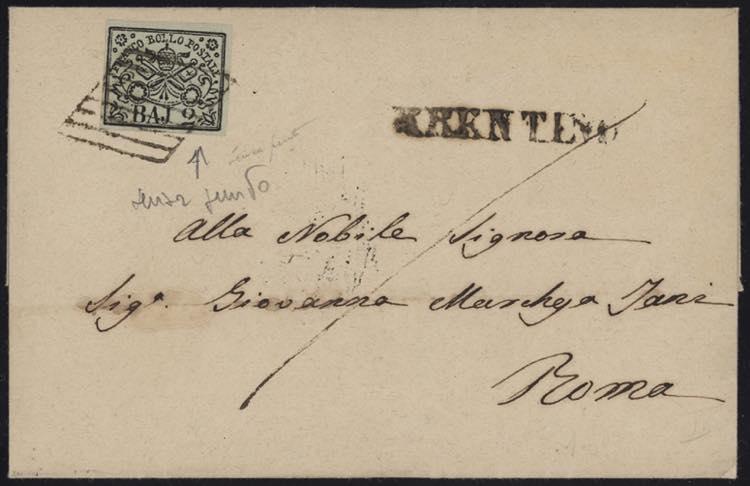 FRANCO BOLLO POSTALE
BAJ 2
senza punto
senza punto
Alla Nobile Signora
Sigª. Giovanna Marchesa
Roma